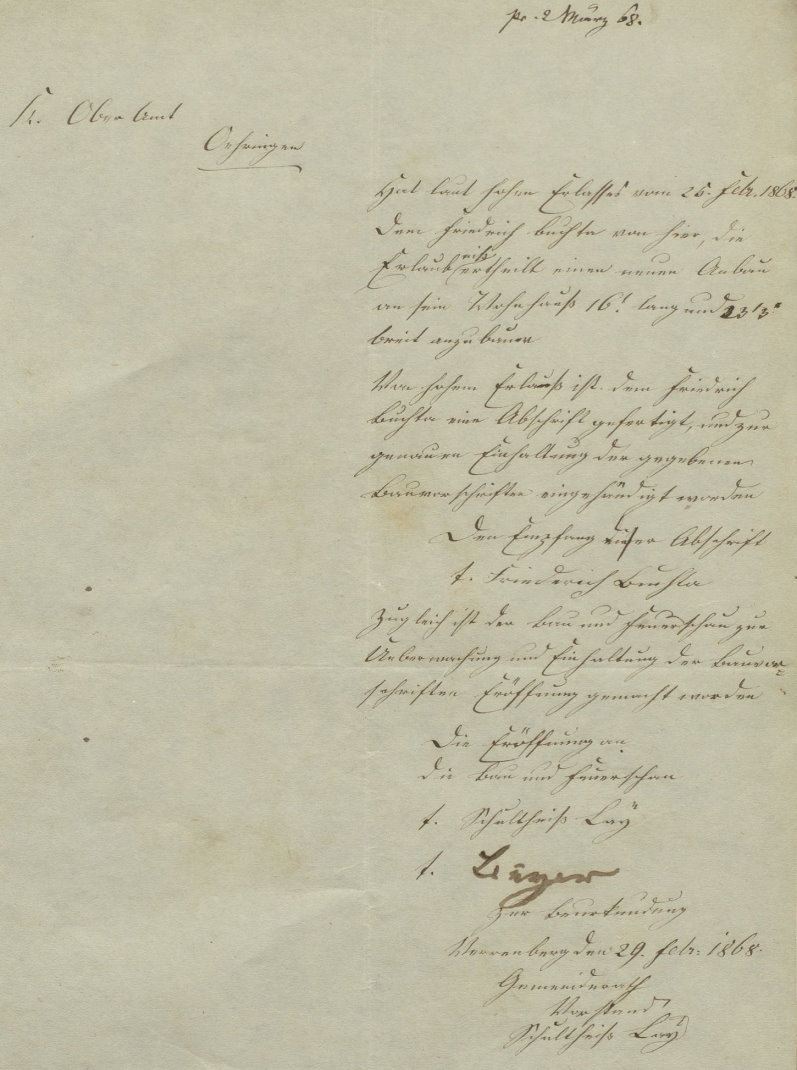 pr. 2 März 68.
K. Ober Amt
Oehringen
Hat laut hohen Erlasses vom 25. Febr. 1868
dem Friedrich Buchta von hier, die
Erlaubniß ertheilt einen neuen Anbau
an sein Wohnhauß 16' lang und 13'3"
breit anzubauen
Von hohem Erlaß ist dem Friedrich
Buchta eine Abschrift gefertigt, und zur
genauen Einhaltung der gegebenen
Bauvorschriften eingehändigt worden
Den Empfang dieser Abschrift
t. Friederich Buchta
Zugleich ist der Bau und Feuerschau zur
Ueberwachung und Einhaltung der Bauvor=
schriften Eröffnung gemacht worden
Die Eröffnung an
die Bau und Feuerschau
t. Schultheiß Laÿ
t.
Zur Beurkundung
Verrenberg den 29. Febr. 1868.
Gemeinderath
Vorstand
Schultheiß Laÿ